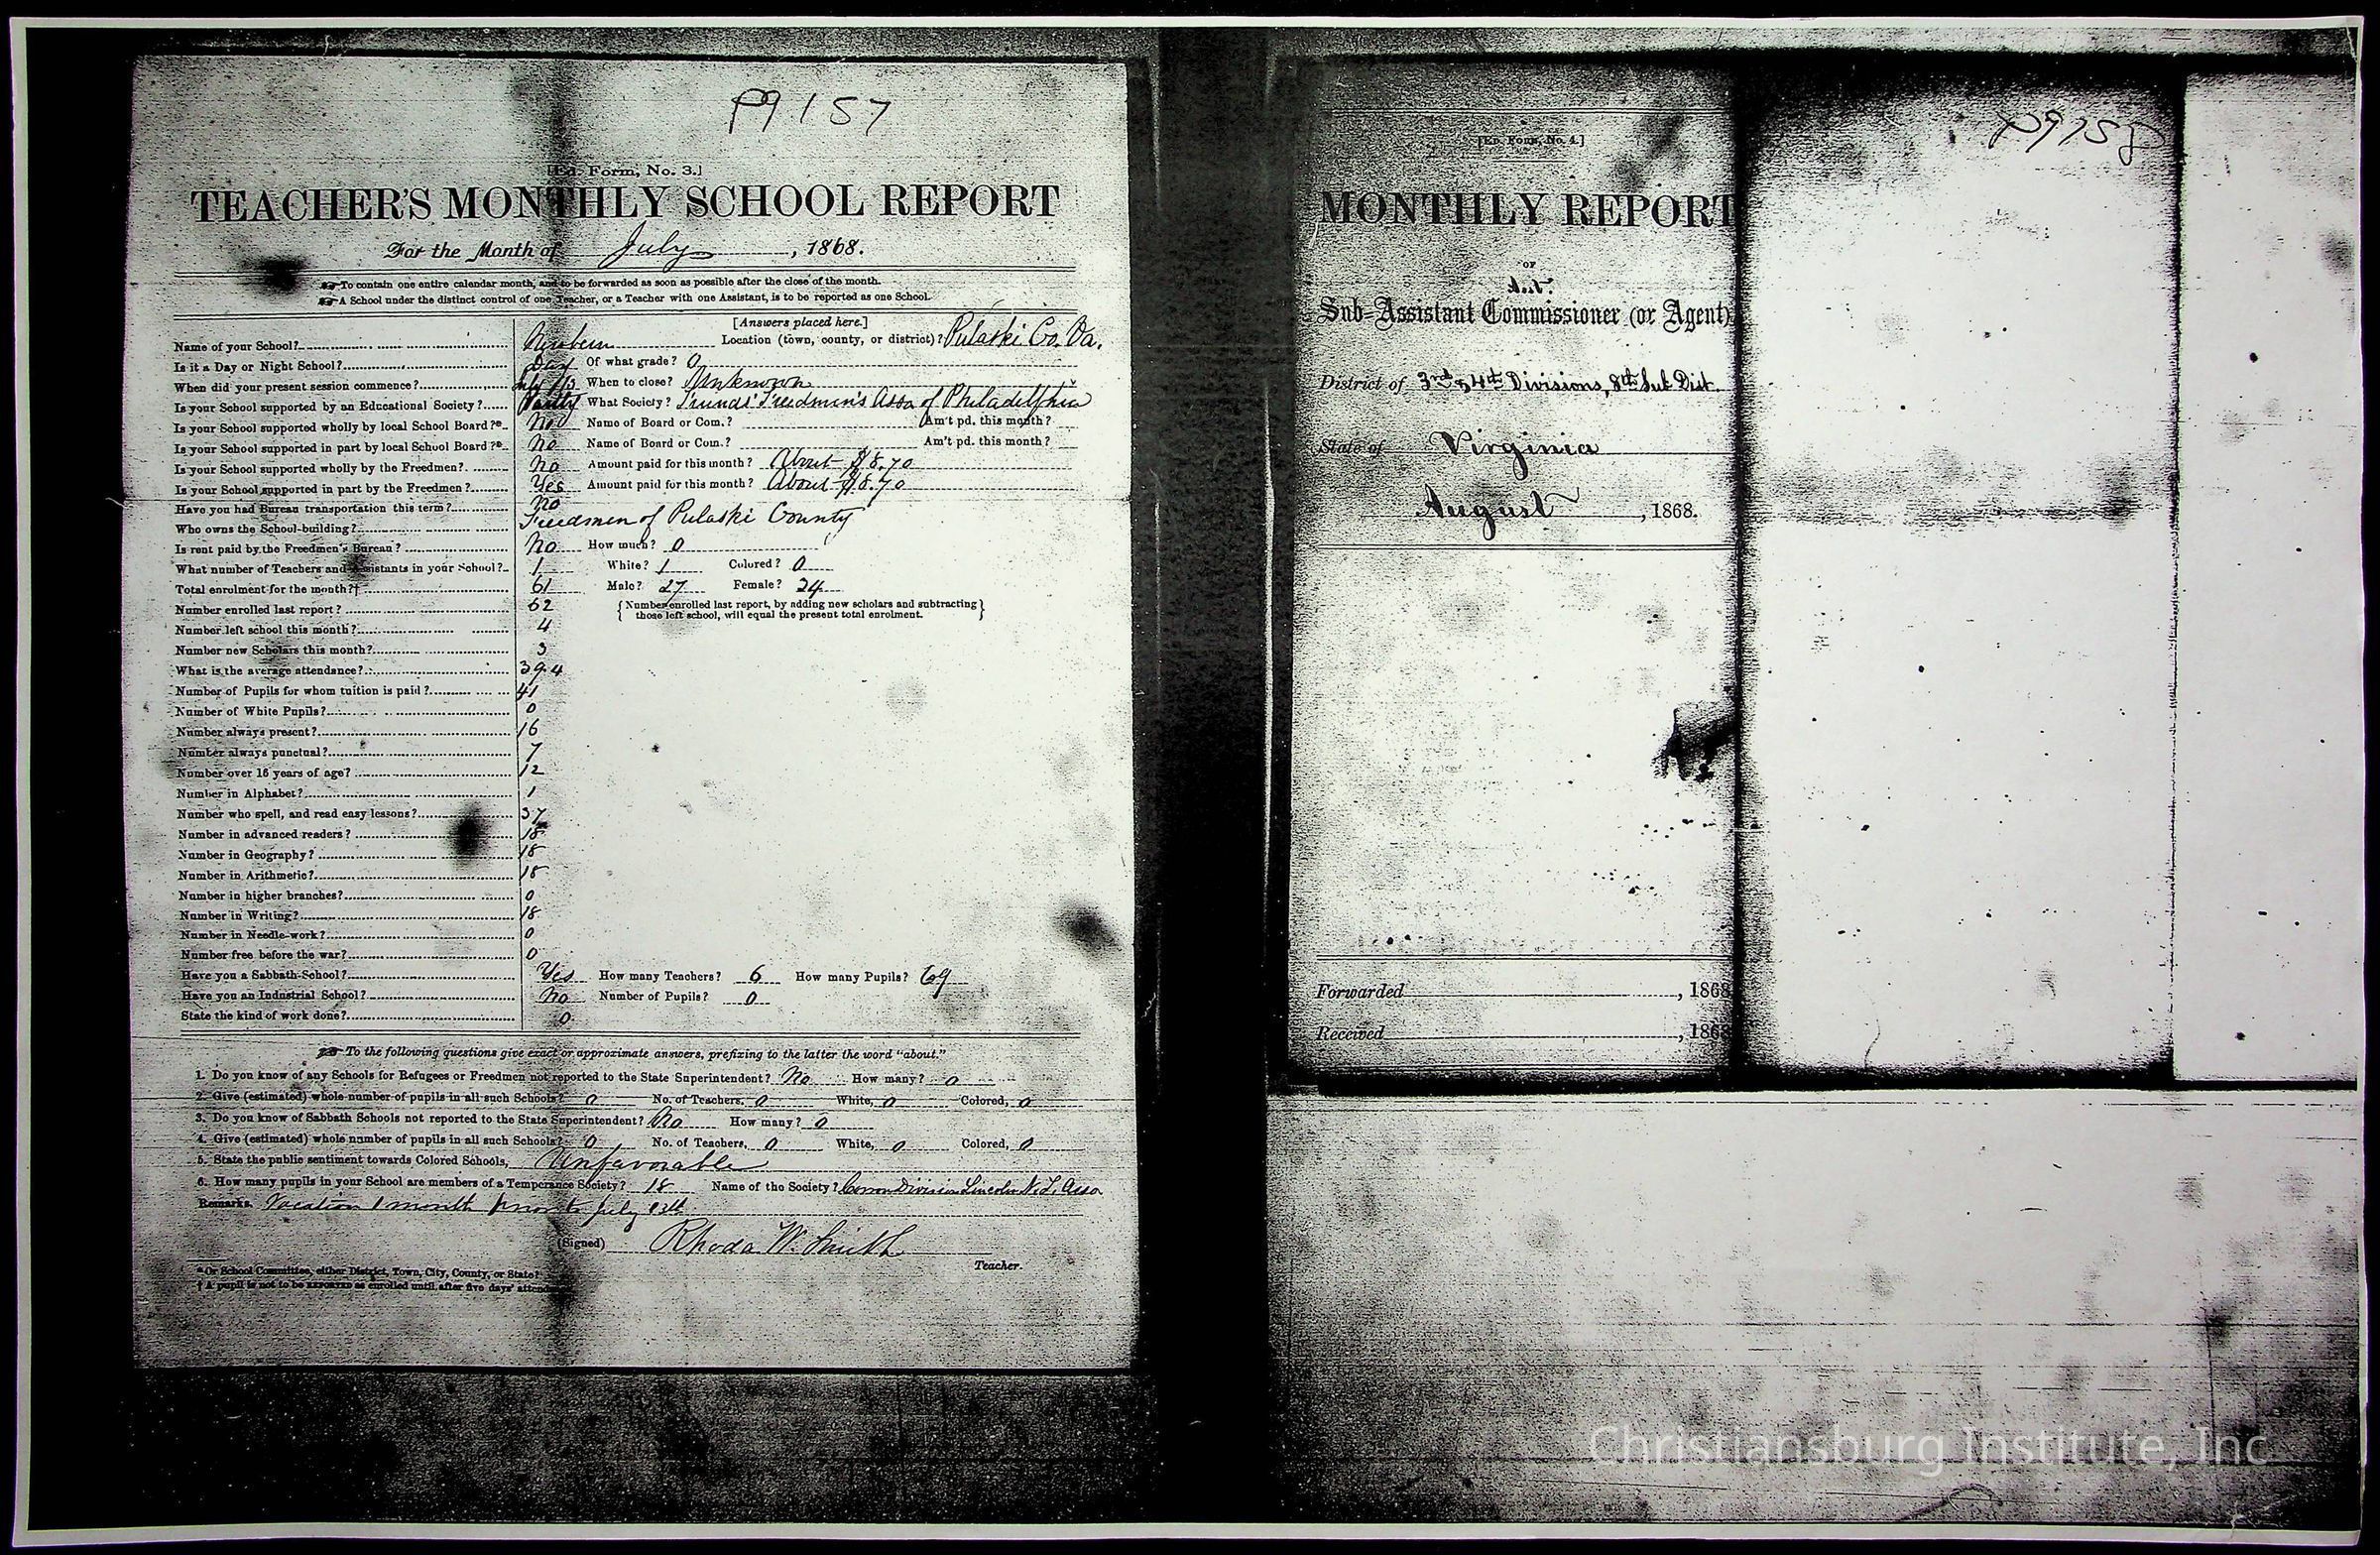 P9157
[Ed. Form, No. 3.]
TEACHER'S MONTHLY SCHOOL REPORT
For the Month of July, 1868.
To contain one entire calendar month, and to be forwarded as soon as possible after the close of the month.
A School under the distinct control of one Teacher, or a Teacher with one Assistant, is to be reported as one School.
[Answers placed here.]
Name of your School? Newbern Location (town, county, or district)? Pulaski Co. Va.
Is it a Day or Night School? Day Of what grade? 0
When did your present session commence? When to close? Unknown
Is your School supported by an Educational Society? Partly What Society? Friends' Freedmen's Asso of Philadelphia
Is your School supported wholly by local School Board?* No Name of Board or Com.? Am't pd. this month?
Is your School supported in part by local School Board?* No Name of Board or Com.? Am't pd. this month?
Is your School supported wholly by the Freedmen? No Amount paid for this month? About $8.70
Is your School supported in part by the Freedmen? Yes Amount paid for this month? About $8.70
Have you had Bureau transportation this term? No
Who owns the School-building? Freedmen of Pulaski County
Is rent paid by the Freedmen's Bureau? No How much? 0
What number of Teachers and Assistants in your School? 1 White? 1 Colored? 0
Total enrolment for the month?† 61 Male? 27 Female? 24
Number enrolled last report? 62 {Number enrolled last report, by adding new scholars and subtracting
those left school, will equal the present total enrolment.}
Number left school this month? 4
Number new Scholars this month? 3
What is the average attendance? 39.4
Number of Pupils for whom tuition is paid? 41
Number of White Pupils? 0
Number always present? 16
Number always punctual? 7
Number over 16 years of age? 12
Number in Alphabet? 1
Number who spell, and read easy lessons? 37
Number in advanced readers? 18
Number in Geography? 18
Number in Arithmetic? 18
Number in higher branches? 0
Number in Writing? 18
Number in Needle-work? 0
Number free before the war? 0
Have you a Sabbath-School? Yes How many Teachers? 6 How many Pupils? 69
Have you an Industrial School? No Number of Pupils? 0
State the kind of work done? 0
To the following questions give exact or approximate answers, prefixing to the latter the word "about."
1. Do you know of any Schools for Refugees or Freedmen not reported to the State Superintendent? No How many? 0
2. Give (estimated) whole number of pupils in all such Schools? 0 No. of Teachers, 0 White, 0 Colored, 0
3. Do you know of Sabbath Schools not reported to the State Superintendent? No How many? 0
4. Give (estimated) whole number of pupils in all such Schools? 0 No. of Teachers, 0 White, 0 Colored, 0
5. State the public sentiment towards Colored Schools, Unfavorable
6. How many pupils in your School are members of a Temperance Society? 18 Name of the Society? Division Lincoln N. T. Asso
Remarks. Vacation 1 month prior to July 13th
(Signed) Rhoda W. Smith
Teacher.
* Or School Committee, either District, Town, City, County, or State?
† A pupil is not to be REPORTED as enrolled until after five days'
P9158
[Ed. Form, No. 4.]
MONTHLY REPORT
OF
Ast.
Sub-Assistant Commissioner (or Agent)
District of 3rd & 4th Divisions, 8th Sub Dist.
State of Virginia
August, 1868.
Forwarded, 1868
Received, 1868
Christiansburg Institute, Inc